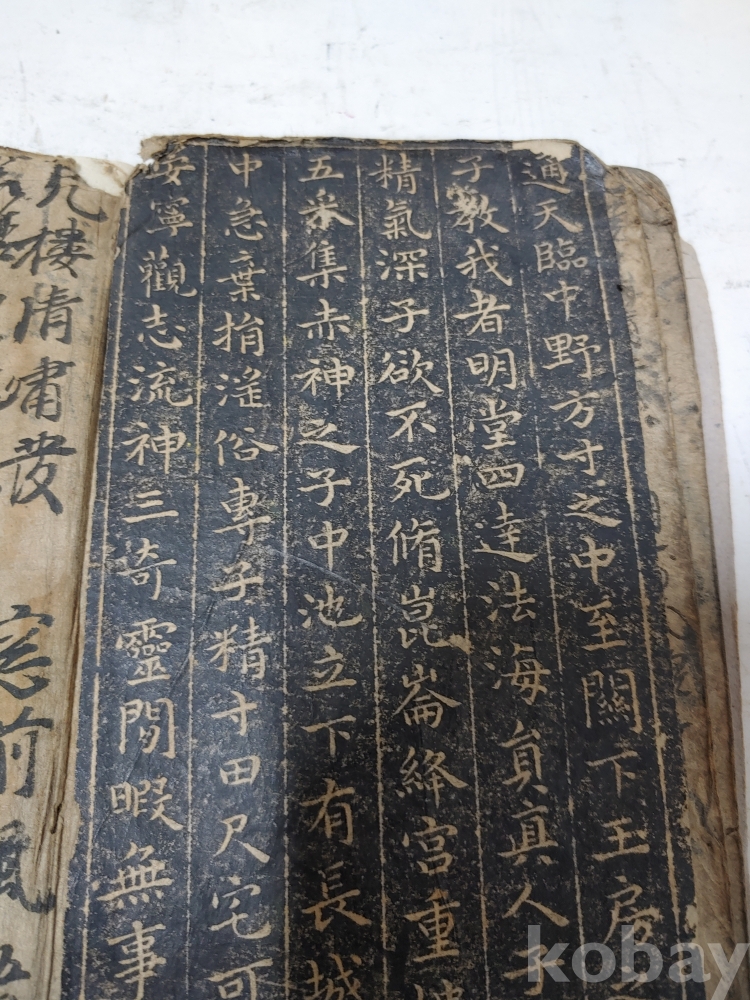 通天臨中野方寸之中至關下王房
子教我者明堂四達法海貟真人子
精氣深子欲不死脩崑崙絳宮重
五采集赤神之子中池立下有長城
中急棄捐滛俗專子精寸田尺宅可
安寧觀志流神三奇靈閒暇無事
樓清嘯發
窓前風
kobay